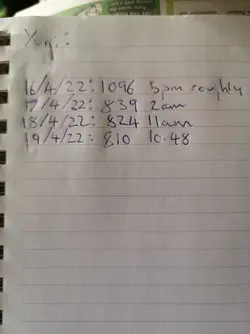 Yugi:
16/4/22: 1096 5pm roughly
17/4/22: 839 2am
18/4/22: 824 11am
19/4/22: 810 10.48